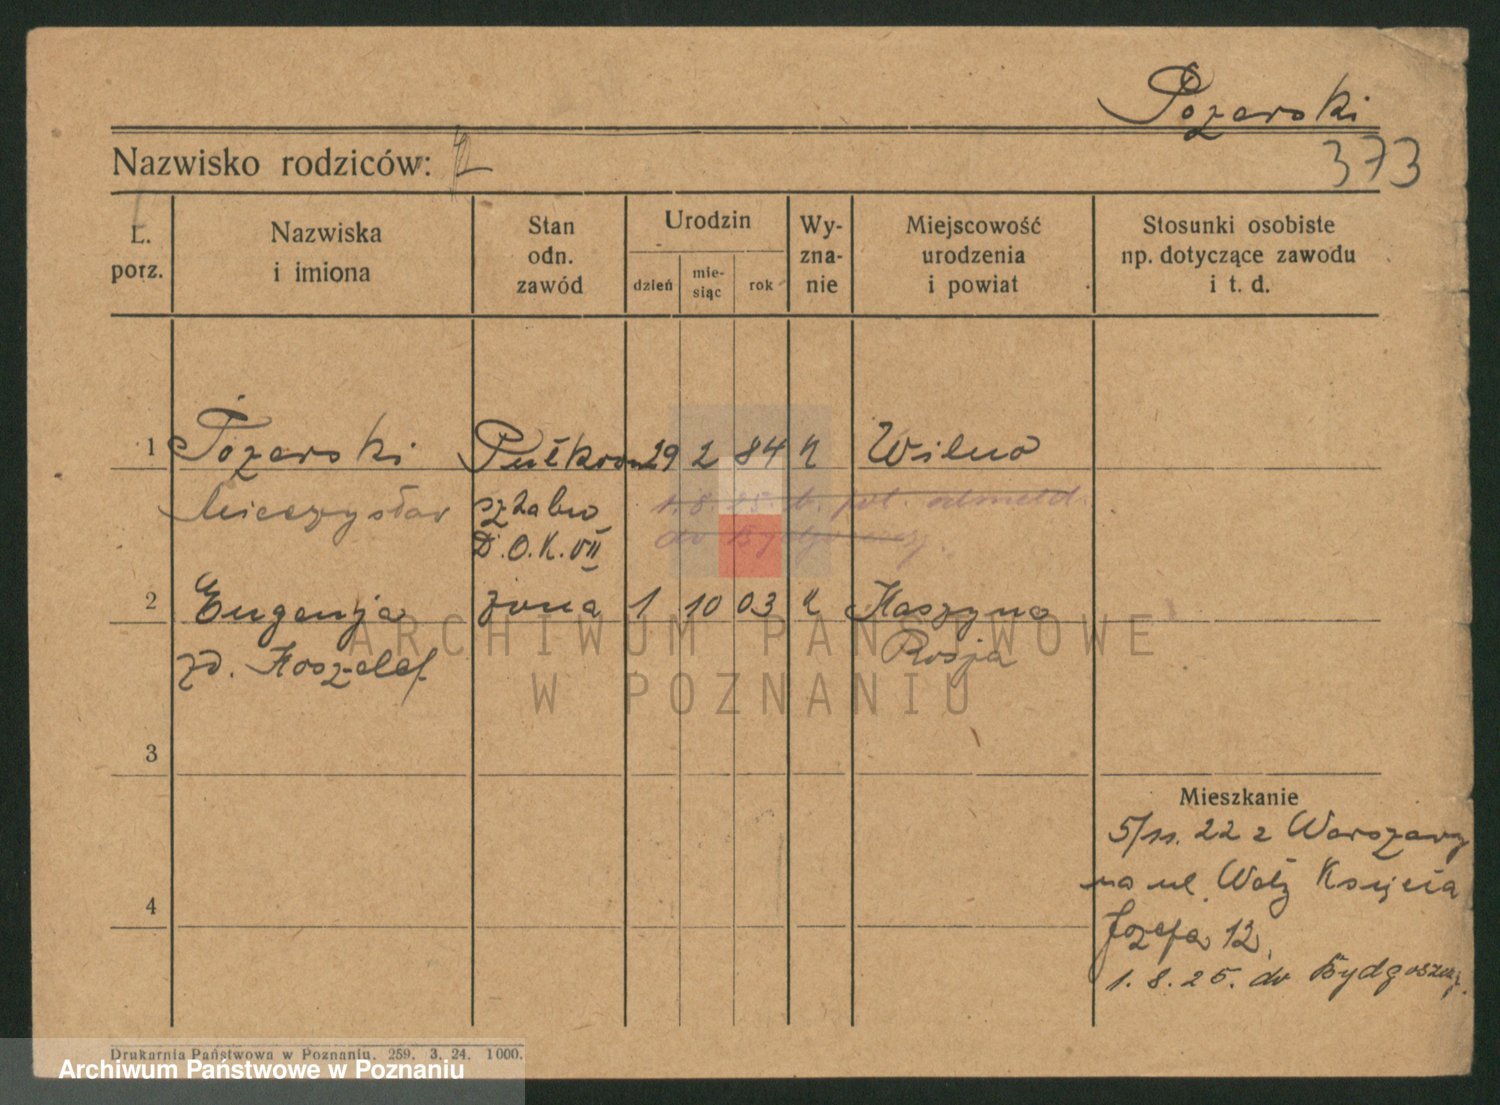 Pożarski
Nazwisko rodziców:
373
L. porz.
Nazwiska i imiona
Stan odn. zawód
Urodzin
dzień
mie-
siąc
rok
Wy-
zna-
nie
Miejscowość urodzenia i powiat
Stosunki osobiste np. dotyczące zawodu i t. d.
1 Pożarski Pułkown 29 2 84 K Wilno
Mieczysław sztabu 1.8.25. do
D.O.K. VII do Bydgoszczy.
2 Eugenja żona 1 10 03 K
zd. Koszelef Rosja
3
4
Mieszkanie
5/11. 22 z Warszawy
na ul. Wały Księcia
Józefa 12,
1. 8. 25. do Bydgoszczy.
Drukarnia Państwowa w Poznaniu. 259. 3. 24. 1000.
ARCHIWUM PAŃSTWOWE
W POZNANIU
Archiwum Państwowe w Poznaniu